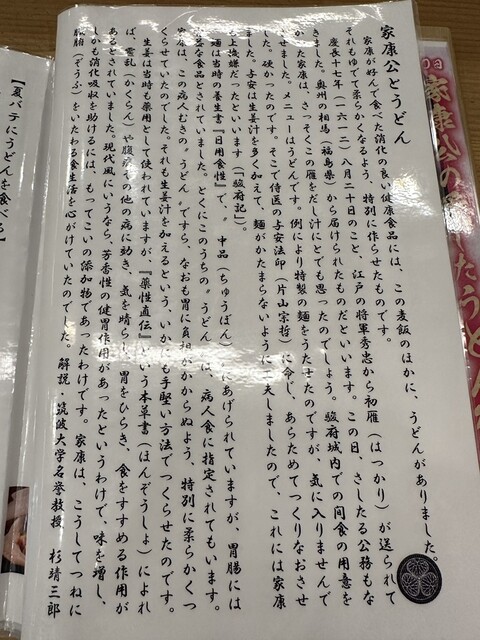 家康公とうどん
家康が好んで食べた消化の良い健康食品には、この麦飯のほかに、うどんがありました。
それもゆでて柔らかくなるよう、特別に作らせたものです。
慶長十七年（一六一二）八月二十日のこと、江戸の将軍秀忠から初雁（はつかり）が送られて
きました。奥州の相馬（福島県）から届けられたものだといいます。この日、さしたる公務もな
かった家康は、さっそくこの雁をだし汁にとでも思ったのでしょう。駿府城内での間食の用意を
させました。メニューはうどんです。例により特製の麺をうたせたのですが、気に入りませんで
した。硬かったのです。そこで侍医の与安法印（片山宗哲）に令し、あらためてつくりなおさせ
ました。与安は生姜汁を多く加えて、麺がかたまらないように工夫しましたので、これには家康
も上機嫌だったといいます（「駿府記」）。
麺は当時の養生書『日用食性』で、中品（ちゅうぼん）にあげられていますが、胃腸には
な食品とされていました。とくにこのうちの〝うどん〟は、病人食に指定されてもいます。
家康は、この病人むきの〝うどん〟ですら、なおも胃に負担がかからぬよう、特別に柔らかくつ
くらせていたのでした。それも生姜汁を加えるという、いかにも手堅い方法でつくらせたのです。
生姜は当時も薬用として使われていますが、『薬性直伝』という本草書（ほんぞうしょ）によれ
ば、霍乱（かくらん）や腹痛その他の病に効き、気を晴らし、胃をひらき、食をすすめる作用が
あるとされていました。現代風にいうなら、芳香性の健胃作用があったというわけで、味を増し、
しかも消化吸収を助けるには、もってこいの添加物であったわけです。家康は、こうしてつねに
臓腑（ぞうふ）をいたわる食生活を心がけていたのでした。
解説・筑波大学名誉教授 杉靖三郎
【夏バテにうどんを食べる】
家康公の
したうどん